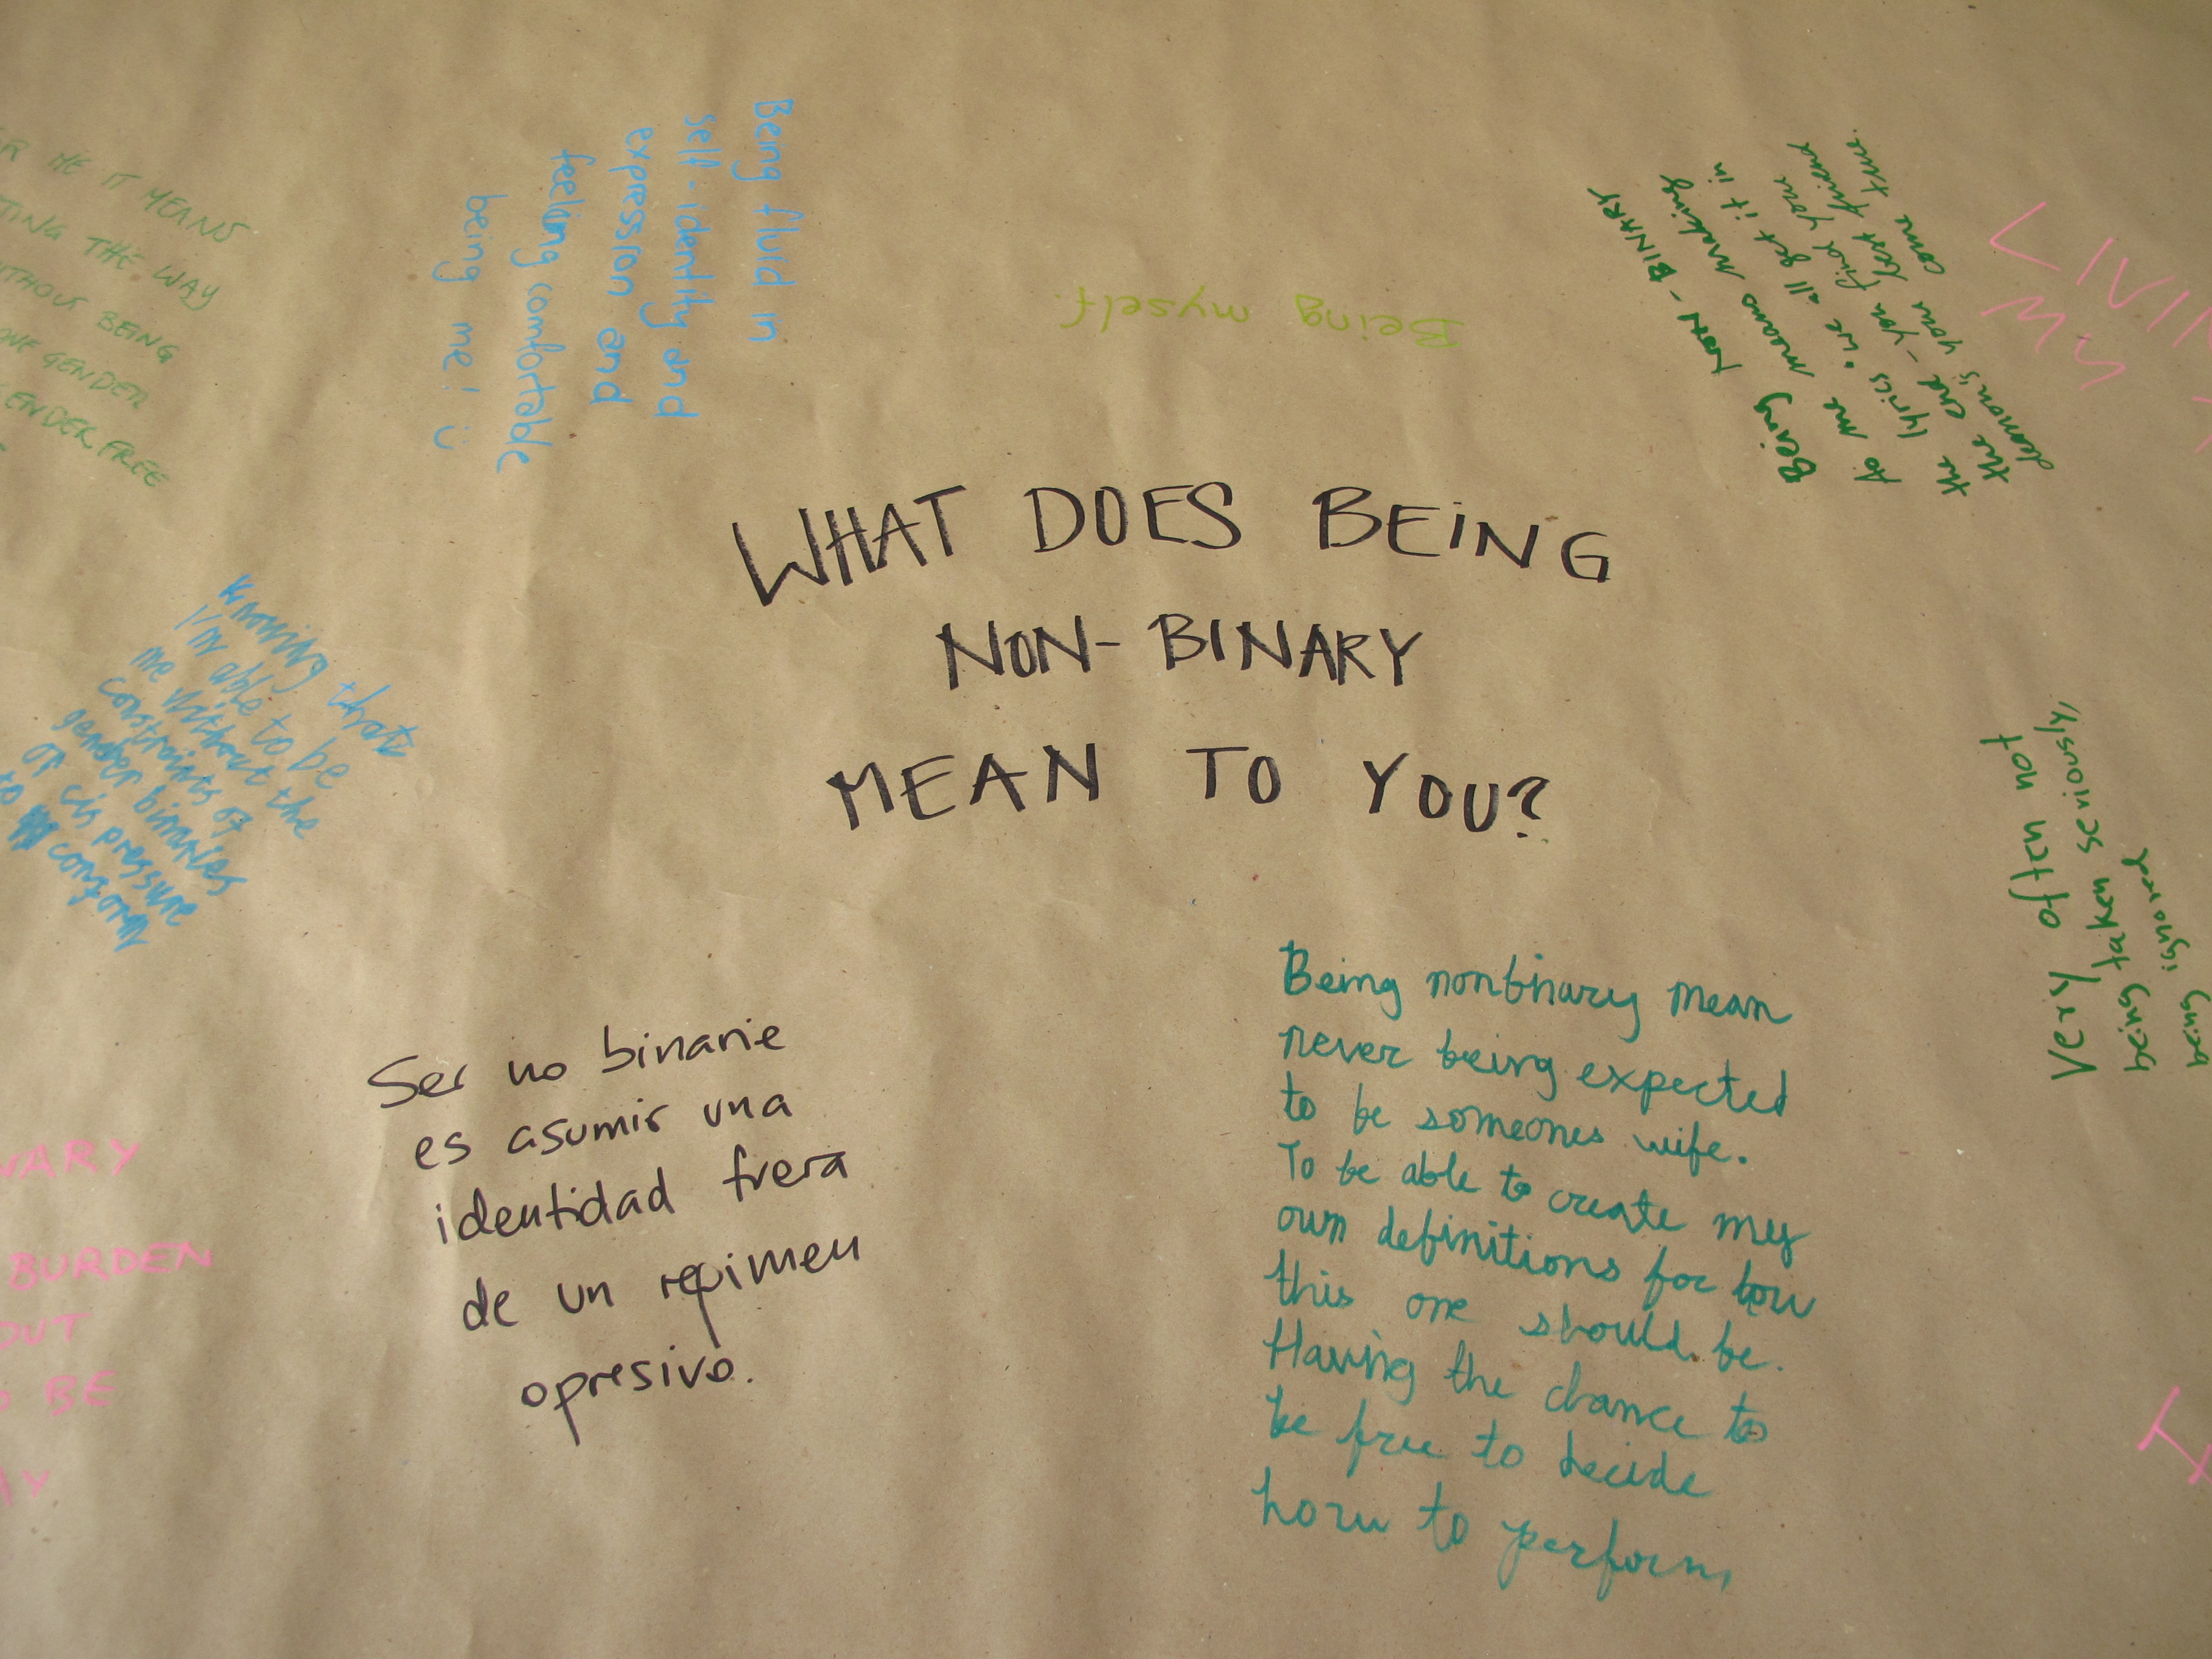 WHAT DOES BEING
NON-BINARY
MEAN TO YOU?
ME IT MEANS
THE WAY
BEING
GENDER
FREE
Being fluid in
self-identity and
expression and
feeling comfortable
being me! :)
Being myself.
Being NON-BINARY
to me means making
the lyrics "we all get it in
the end - you find your
demon's your best friend
come true.
MY
knowing that
I'm able to be
me without the
constraints of
gender binaries
or cis pressure
to conform
Very often not
being taken seriously,
being ignored
Ser no binarie
es asumir una
identidad fuera
de un regimen
opresivo.
Being nonbinary mean
never being expected
to be someones wife.
To be able to create my
own definitions for how
this one should be.
Having the chance to
be free to decide
how to perform
BURDEN
BE